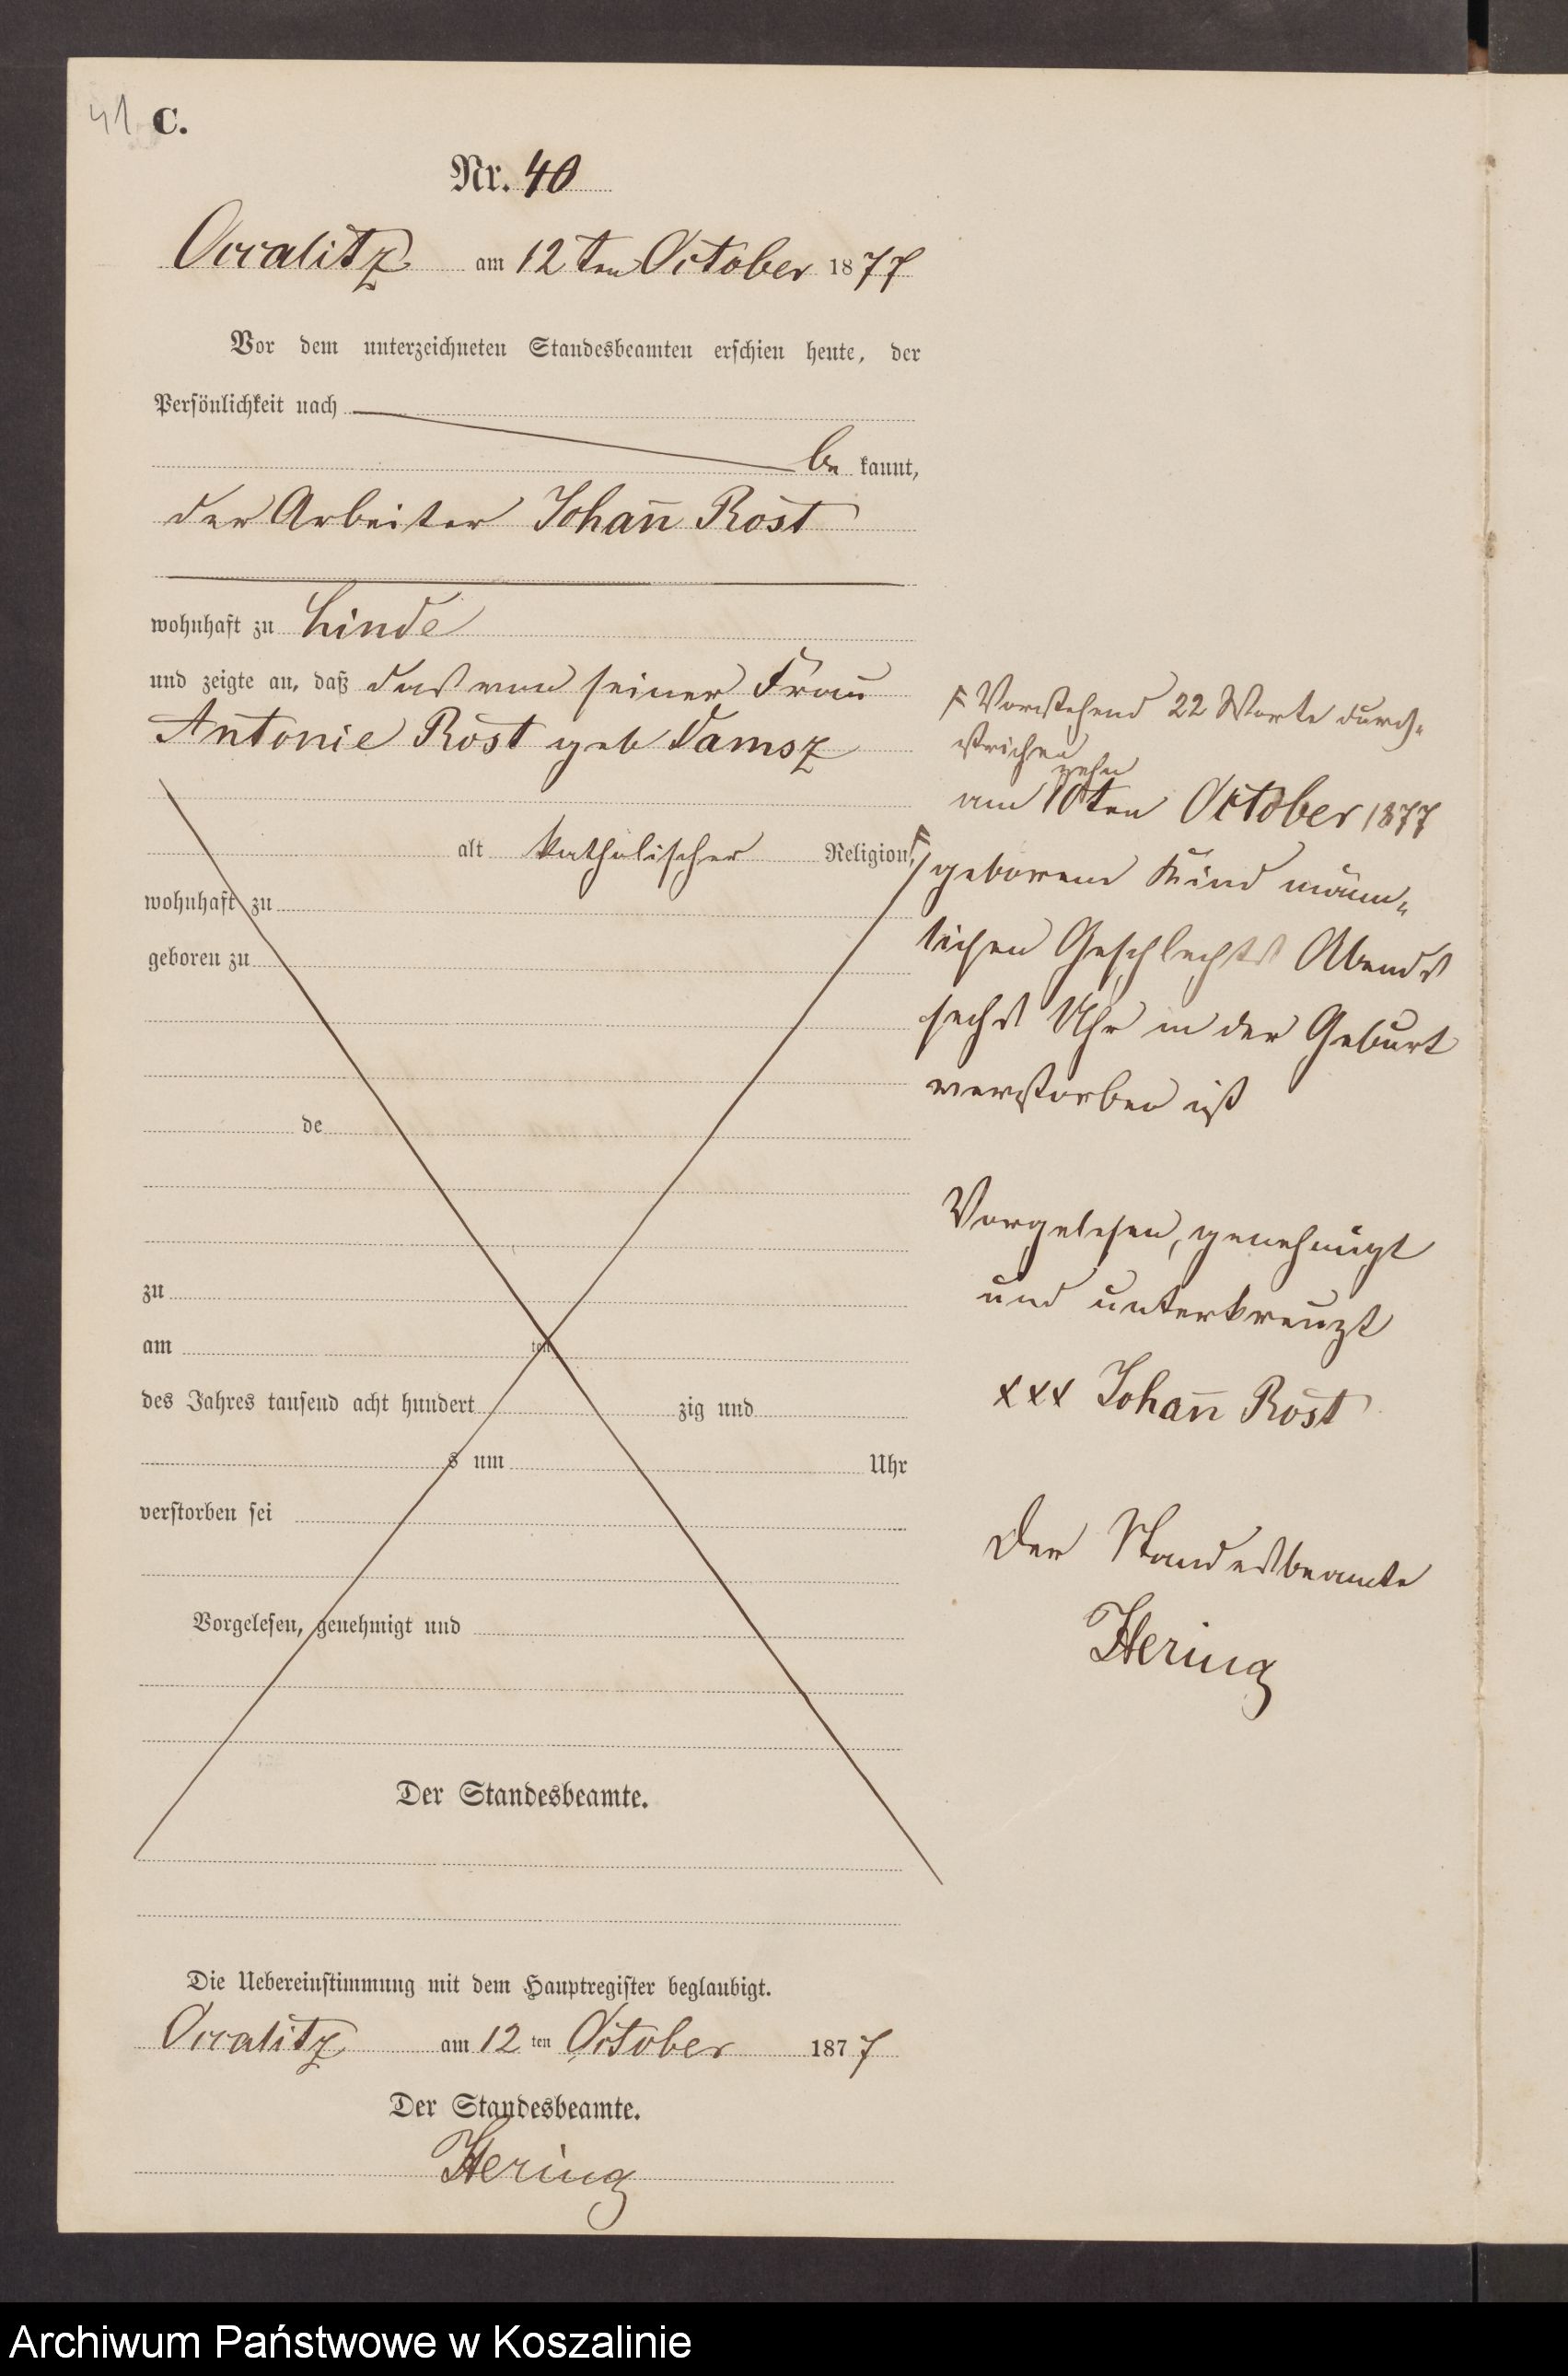 41 C.
Nr. 40
Occalitz am 12ten October 1877
Vor dem unterzeichneten Standesbeamten erschien heute, der
Persönlichkeit nach
be kannt,
der Arbeiter Johan̄ Rost
wohnhaft zu Linde
und zeigte an, daß das von seiner Frau
Antonie Rost geb Damsz
alt katholischer Religion,
wohnhaft zu
geboren zu
de
zu
am ten
des Jahres tausend acht hundert zig und
s um Uhr
verstorben sei
Vorgelesen, genehmigt und
Der Standesbeamte.
Die Uebereinstimmung mit dem Hauptregister beglaubigt.
Occalitz am 12 ten October 1877
Der Standesbeamte.
Hering
F Vorstehend 22 Worte durch-
strichen
zehn
am 10ten October 1877
F geborene Kind männ-
lichen Geschlechts Abends
sechs Uhr in der Geburt
verstorben ist
Vorgelesen, genehmigt
und unterkreuzt
xxx Johan̄ Rost
Der Standesbeamte
Hering
Archiwum Państwowe w Koszalinie